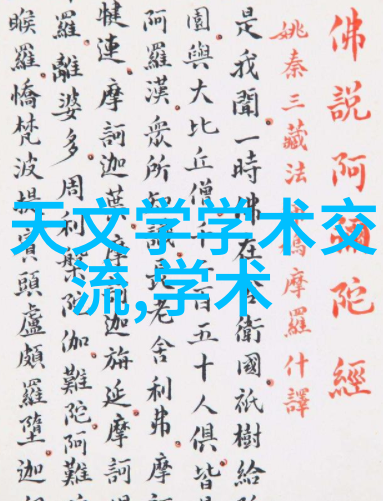 佛說阿彌陀經
姚秦三藏法鳩摩羅什譯
是我聞一時佛在舍衛國祇樹給
園與大比丘僧千二百五十人俱皆
阿羅漢眾所知識長老舍利弗摩訶
犍連摩訶迦葉摩訶迦旃延摩訶
羅離婆多周利槃陀伽難陀阿難
睺羅憍梵波提賓頭盧頗羅墮迦
天文学学术交
流,学术